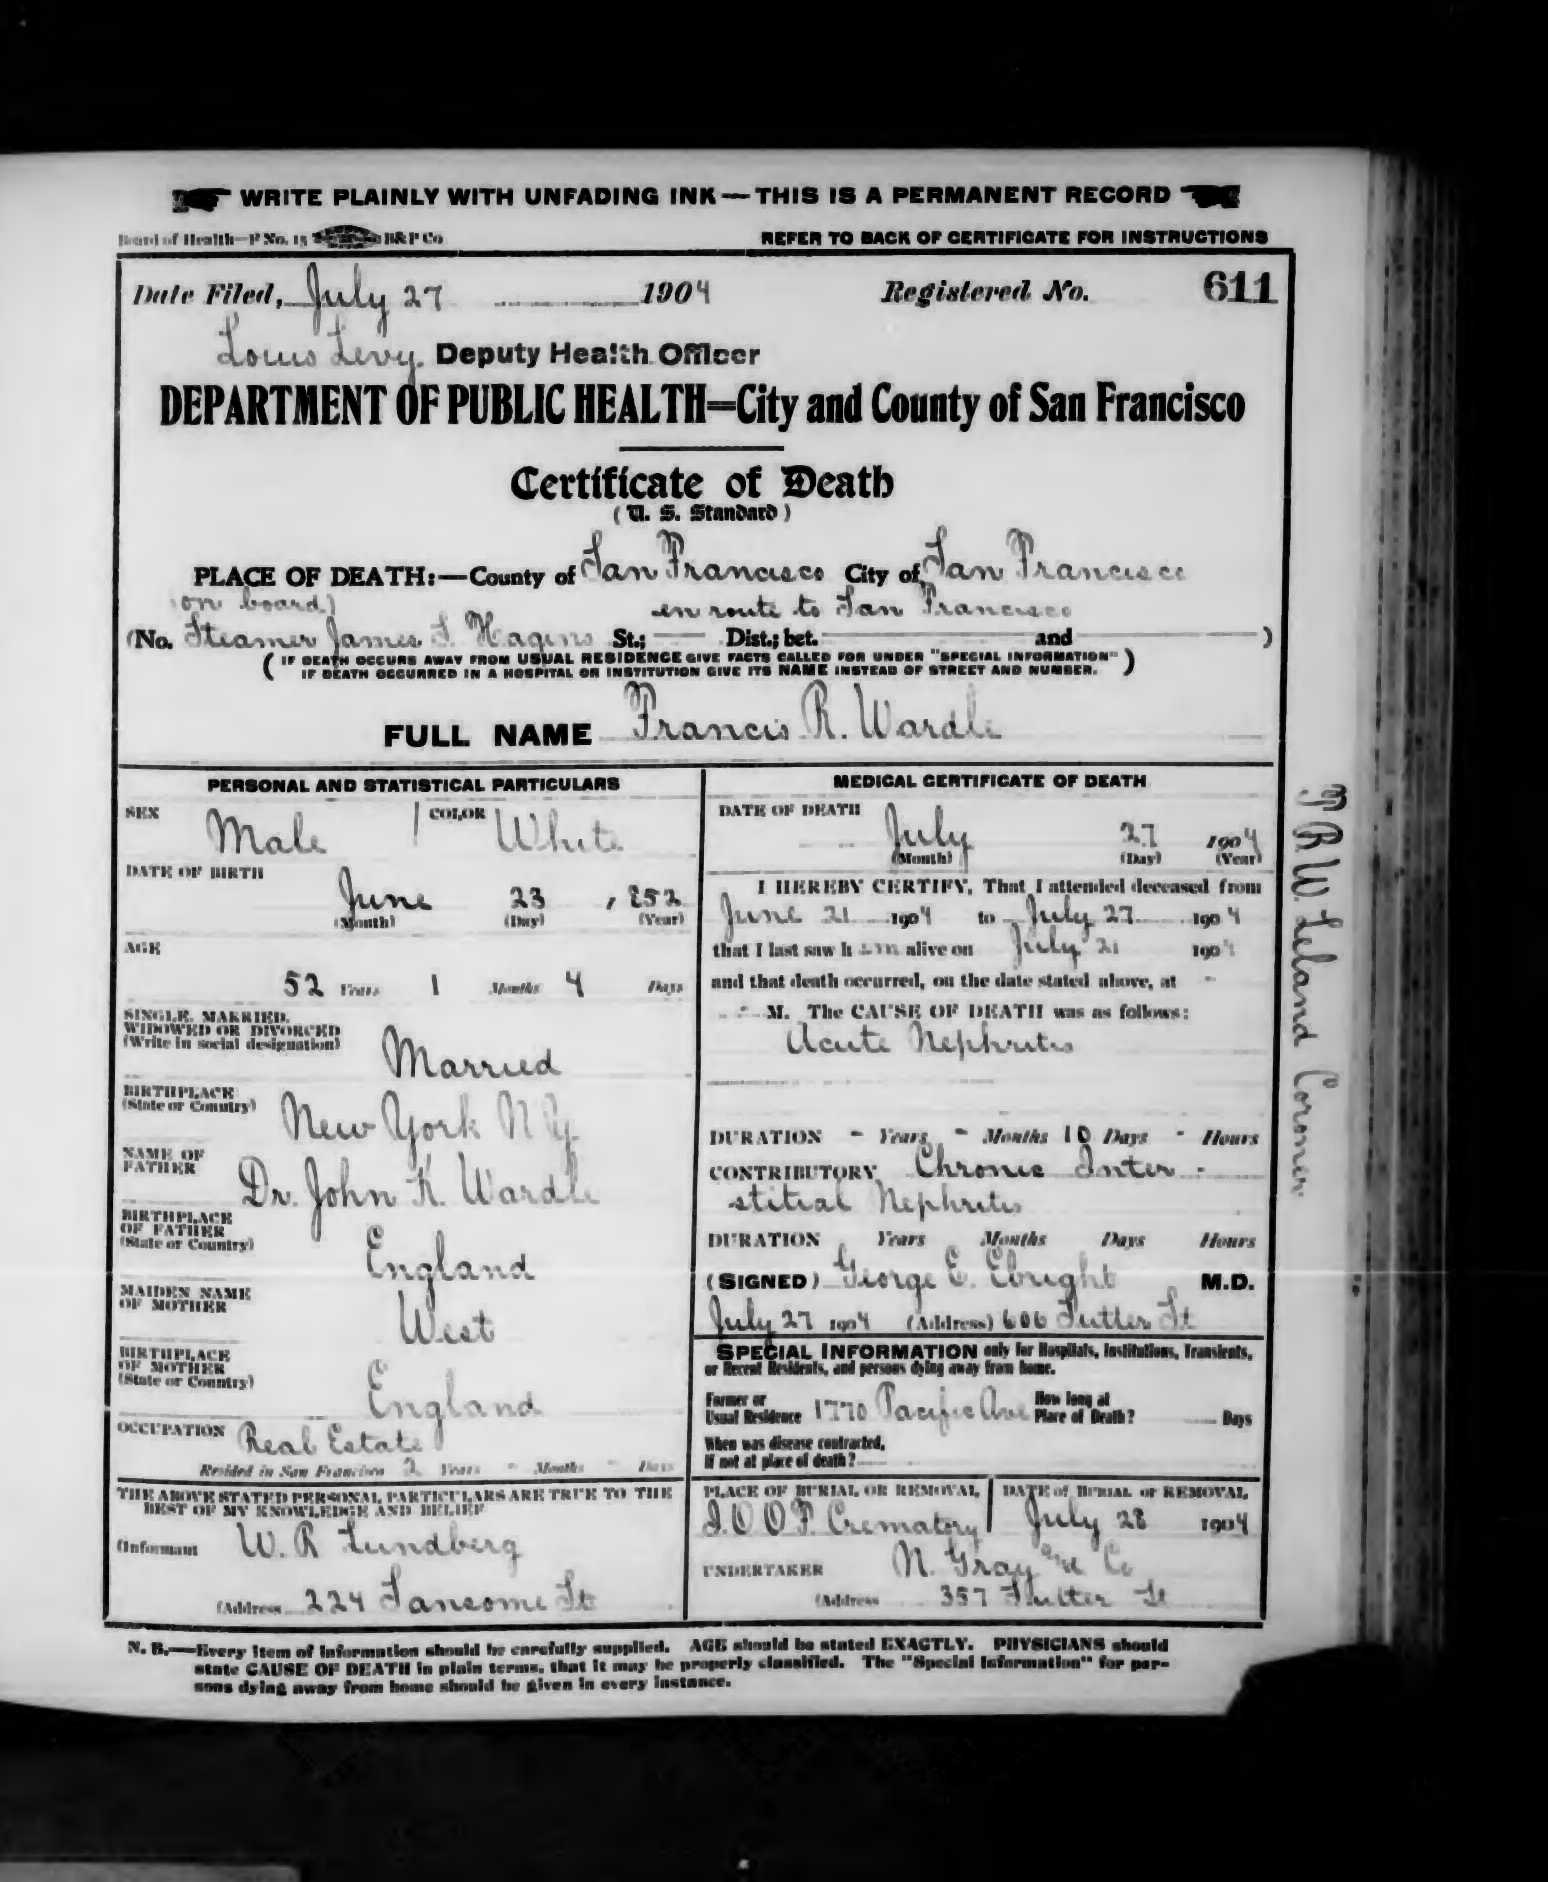 WRITE PLAINLY WITH UNFADING INK — THIS IS A PERMANENT RECORD
Board of Health—P No. 15 B&P Co REFER TO BACK OF CERTIFICATE FOR INSTRUCTIONS
Date Filed, July 27 1904 Registered No. 611
Louis Levy. Deputy Health Officer
DEPARTMENT OF PUBLIC HEALTH=City and County of San Francisco
Certificate of Death
( U. S. Standard )
PLACE OF DEATH:—County of San Francisco City of San Francisco
(on board) en route to San Francisco
(No. Steamer James S. Hagins St.; Dist.; bet. and )
( IF DEATH OCCURS AWAY FROM USUAL RESIDENCE GIVE FACTS CALLED FOR UNDER "SPECIAL INFORMATION"
IF DEATH OCCURRED IN A HOSPITAL OR INSTITUTION GIVE ITS NAME INSTEAD OF STREET AND NUMBER. )
FULL NAME Francis R. Wardle
PERSONAL AND STATISTICAL PARTICULARS
SEX Male COLOR White
DATE OF BIRTH
June 23, 1852
(Month) (Day) (Year)
AGE
52 Years 1 Months 4 Days
SINGLE, MARRIED,
WIDOWED OR DIVORCED
(Write in social designation) Married
BIRTHPLACE
(State or Country) New York N.Y.
NAME OF
FATHER Dr. John K. Wardle
BIRTHPLACE
OF FATHER
(State or Country) England
MAIDEN NAME
OF MOTHER West
BIRTHPLACE
OF MOTHER
(State or Country) England
OCCUPATION Real Estate
Resided in San Francisco 2 Years - Months - Days
THE ABOVE STATED PERSONAL PARTICULARS ARE TRUE TO THE
BEST OF MY KNOWLEDGE AND BELIEF
(Informant W. R Lundberg
(Address 224 Sansome St
MEDICAL CERTIFICATE OF DEATH
DATE OF DEATH
July 27 1904
(Month) (Day) (Year)
I HEREBY CERTIFY, That I attended deceased from
June 21 1904 to July 27 1904
that I last saw him alive on July 21 1904
and that death occurred, on the date stated above, at -
M. The CAUSE OF DEATH was as follows:
Acute Nephritis
DURATION - Years - Months 10 Days - Hours
CONTRIBUTORY Chronic Inter-
stitial Nephritis
DURATION Years Months Days Hours
(SIGNED) George E. Ebright M.D.
July 27 1904 (Address) 606 Sutter St
SPECIAL INFORMATION only for Hospitals, Institutions, Transients,
or Recent Residents, and persons dying away from home.
Former or
Usual Residence 1770 Pacific Ave How long at
Place of Death? Days
When was disease contracted,
If not at place of death?
PLACE OF BURIAL OR REMOVAL DATE of BURIAL or REMOVAL
I.O.O.F. Crematory July 28 1904
UNDERTAKER N. Gray and Co
(Address 357 Sutter St
N. B.—Every item of information should be carefully supplied. AGE should be stated EXACTLY. PHYSICIANS should
state CAUSE OF DEATH in plain terms, that it may be properly classified. The "Special Information" for per-
sons dying away from home should be given in every instance.
Leland Coroner